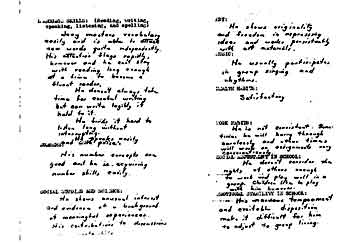 LANGUAGE SKILLS: (Reading, writing,
speaking, listening, and spelling)
Jerry masters vocabulary
easily and is able to attack
new words quite independently.
His attention lags rapidly
however and he can't stay
with reading long enough
at a time to become a
fluent reader.
He doesn't always take
time for careful writing
but can write legibly if
held to it.
He finds it hard to
listen long without
interrupting.
He speaks easily
and with poise.
His number concepts are
good and he is acquiring
number skills easily.
SOCIAL STUDIES AND SCIENCE:
He shows unusual interest
and evidence of a background
of meaningful experiences.
His contributions to discussions
ART:
He shows originality
and freedom in expressing
ideas and works
with art materials.
MUSIC:
He usually participates
in group singing and
rhythms.
HEALTH HABITS:
Satisfactory
WORK HABITS:
He is not consistent. Some
times he will hurry through
carelessly and other times
will work on assignments very
conscientiously.
SOCIAL ADJUSTMENT IN SCHOOL:
He doesn't consider the
rights of others enough
to work and play well in a
group. Children like to play
with him however.
EMOTIONAL STABILITY IN SCHOOL:
His nervous temperament
and excitable disposition
make it difficult for him
to adjust to group living.